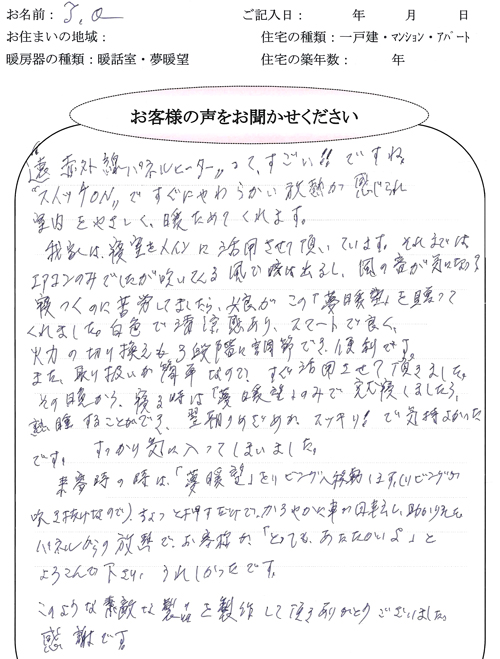 お名前： T, O
ご記入日： 年 月 日
お住まいの地域：
住宅の種類：一戸建・マンション・アパート
暖房器の種類：暖話室・夢暖望
住宅の築年数： 年
お客様の声をお聞かせください
"遠赤外線パネルヒーター"って、すごい!!ですね
"スイッチON"ですぐにやわらかい放熱が感じられ
室内をやさしく、暖ためてくれます。
我家は、寝室をメインに活用させて頂いています。それまでは
エアコンのみでしたが吹いてくる風で咳は出るし、風の音が気になって
寝つくのに苦労してましたら、娘がこの「夢暖望」を贈って
くれました。白色で清涼感あり、スマートで良く、
火力の切り換えも3段階に調節でき、便利です。
また、取り扱いが簡単なので、すぐ活用させて頂きました。
その晩から、寝る時は「夢暖望」のみで就寝しましたら、
熟睡することができ、翌朝のめざめがスッキリ!で気持よかった
です。すっかり気に入ってしまいました。
来客時の時は、「夢暖望」をリビングへ移動します。(リビングが
吹き抜けなので)、ちょっと押すだけで、かろやかに車が回転し、助かります。
パネルからの放熱で、お客様が、「とっても、あたたかいよ」と
よろこんで下さり、うれしかったです。
このような素敵な製品を製作して頂きありがとうございました。
感謝です